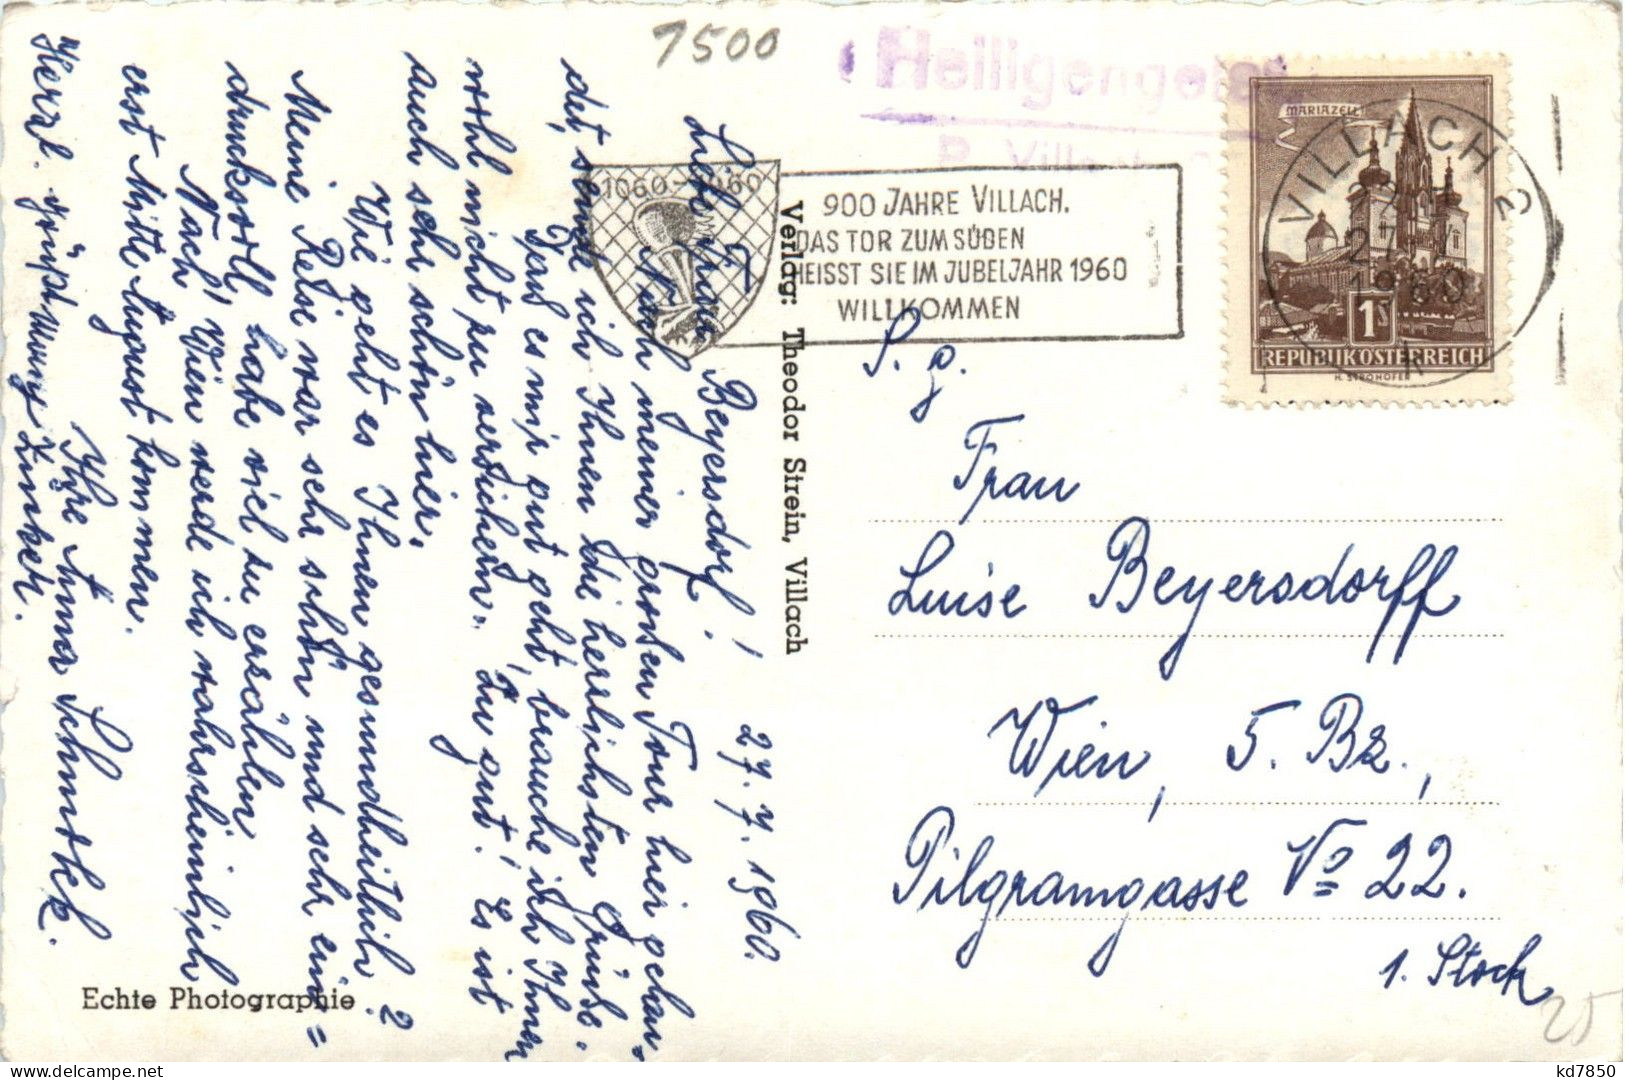 7500
Heiligengeist
P. Villach
1060-1960
900 JAHRE VILLACH.
DAS TOR ZUM SÜDEN
HEISST SIE IM JUBELJAHR 1960
WILLKOMMEN
MARIAZELL
VILLACH 2
27
1960
1S
REPUBLIK ÖSTERREICH
H. STROHOFER
27. 7. 1960.
Liebe Frau Beyersdorf!
Nach meiner großen Tour hier gelan-
det, sende ich Ihnen die herzlichsten Grüße.
Daß es mir gut geht, brauche ich Ihnen
wohl nicht zu versichern. Zu gut! Es ist
auch sehr schön hier.
Wie geht es Ihnen gesundheitlich?
Meine Reise war sehr schön und sehr ein=
drucksvoll, habe viel zu erzählen.
Nach Wien werde ich wahrscheinlich
erst Mitte August kommen.
Ihre Anna
Herzl. grüßt Mung Zunker.
Verlag: Theodor Strein, Villach
Echte Photographie
S. g.
Frau
Luise Beyersdorff
Wien, 5. Bz.,
Pilgramgasse No 22.
1. Stock
25
kd7850